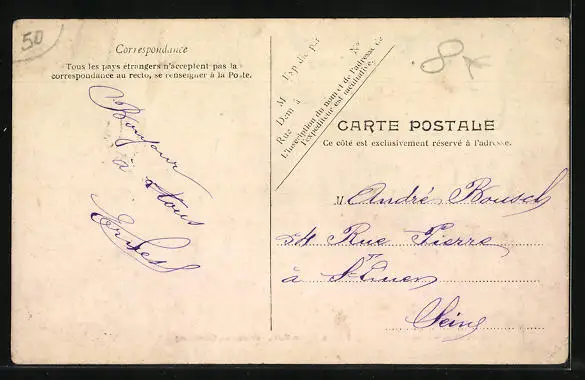 50
Correspondance
Tous les pays étrangers n'acceptent pas la
correspondance au recto, se renseigner à la Poste.
Bonjour
à tous
Ernest
M Expédié par
Dem à
Rue N°
L'inscription du nom et de l'adresse de
l'expéditeur est facultative.
8
CARTE POSTALE
Ce côté est exclusivement réservé à l'adresse.
M André Rousel
54 Rue Pierre
à St Ouen
Seine